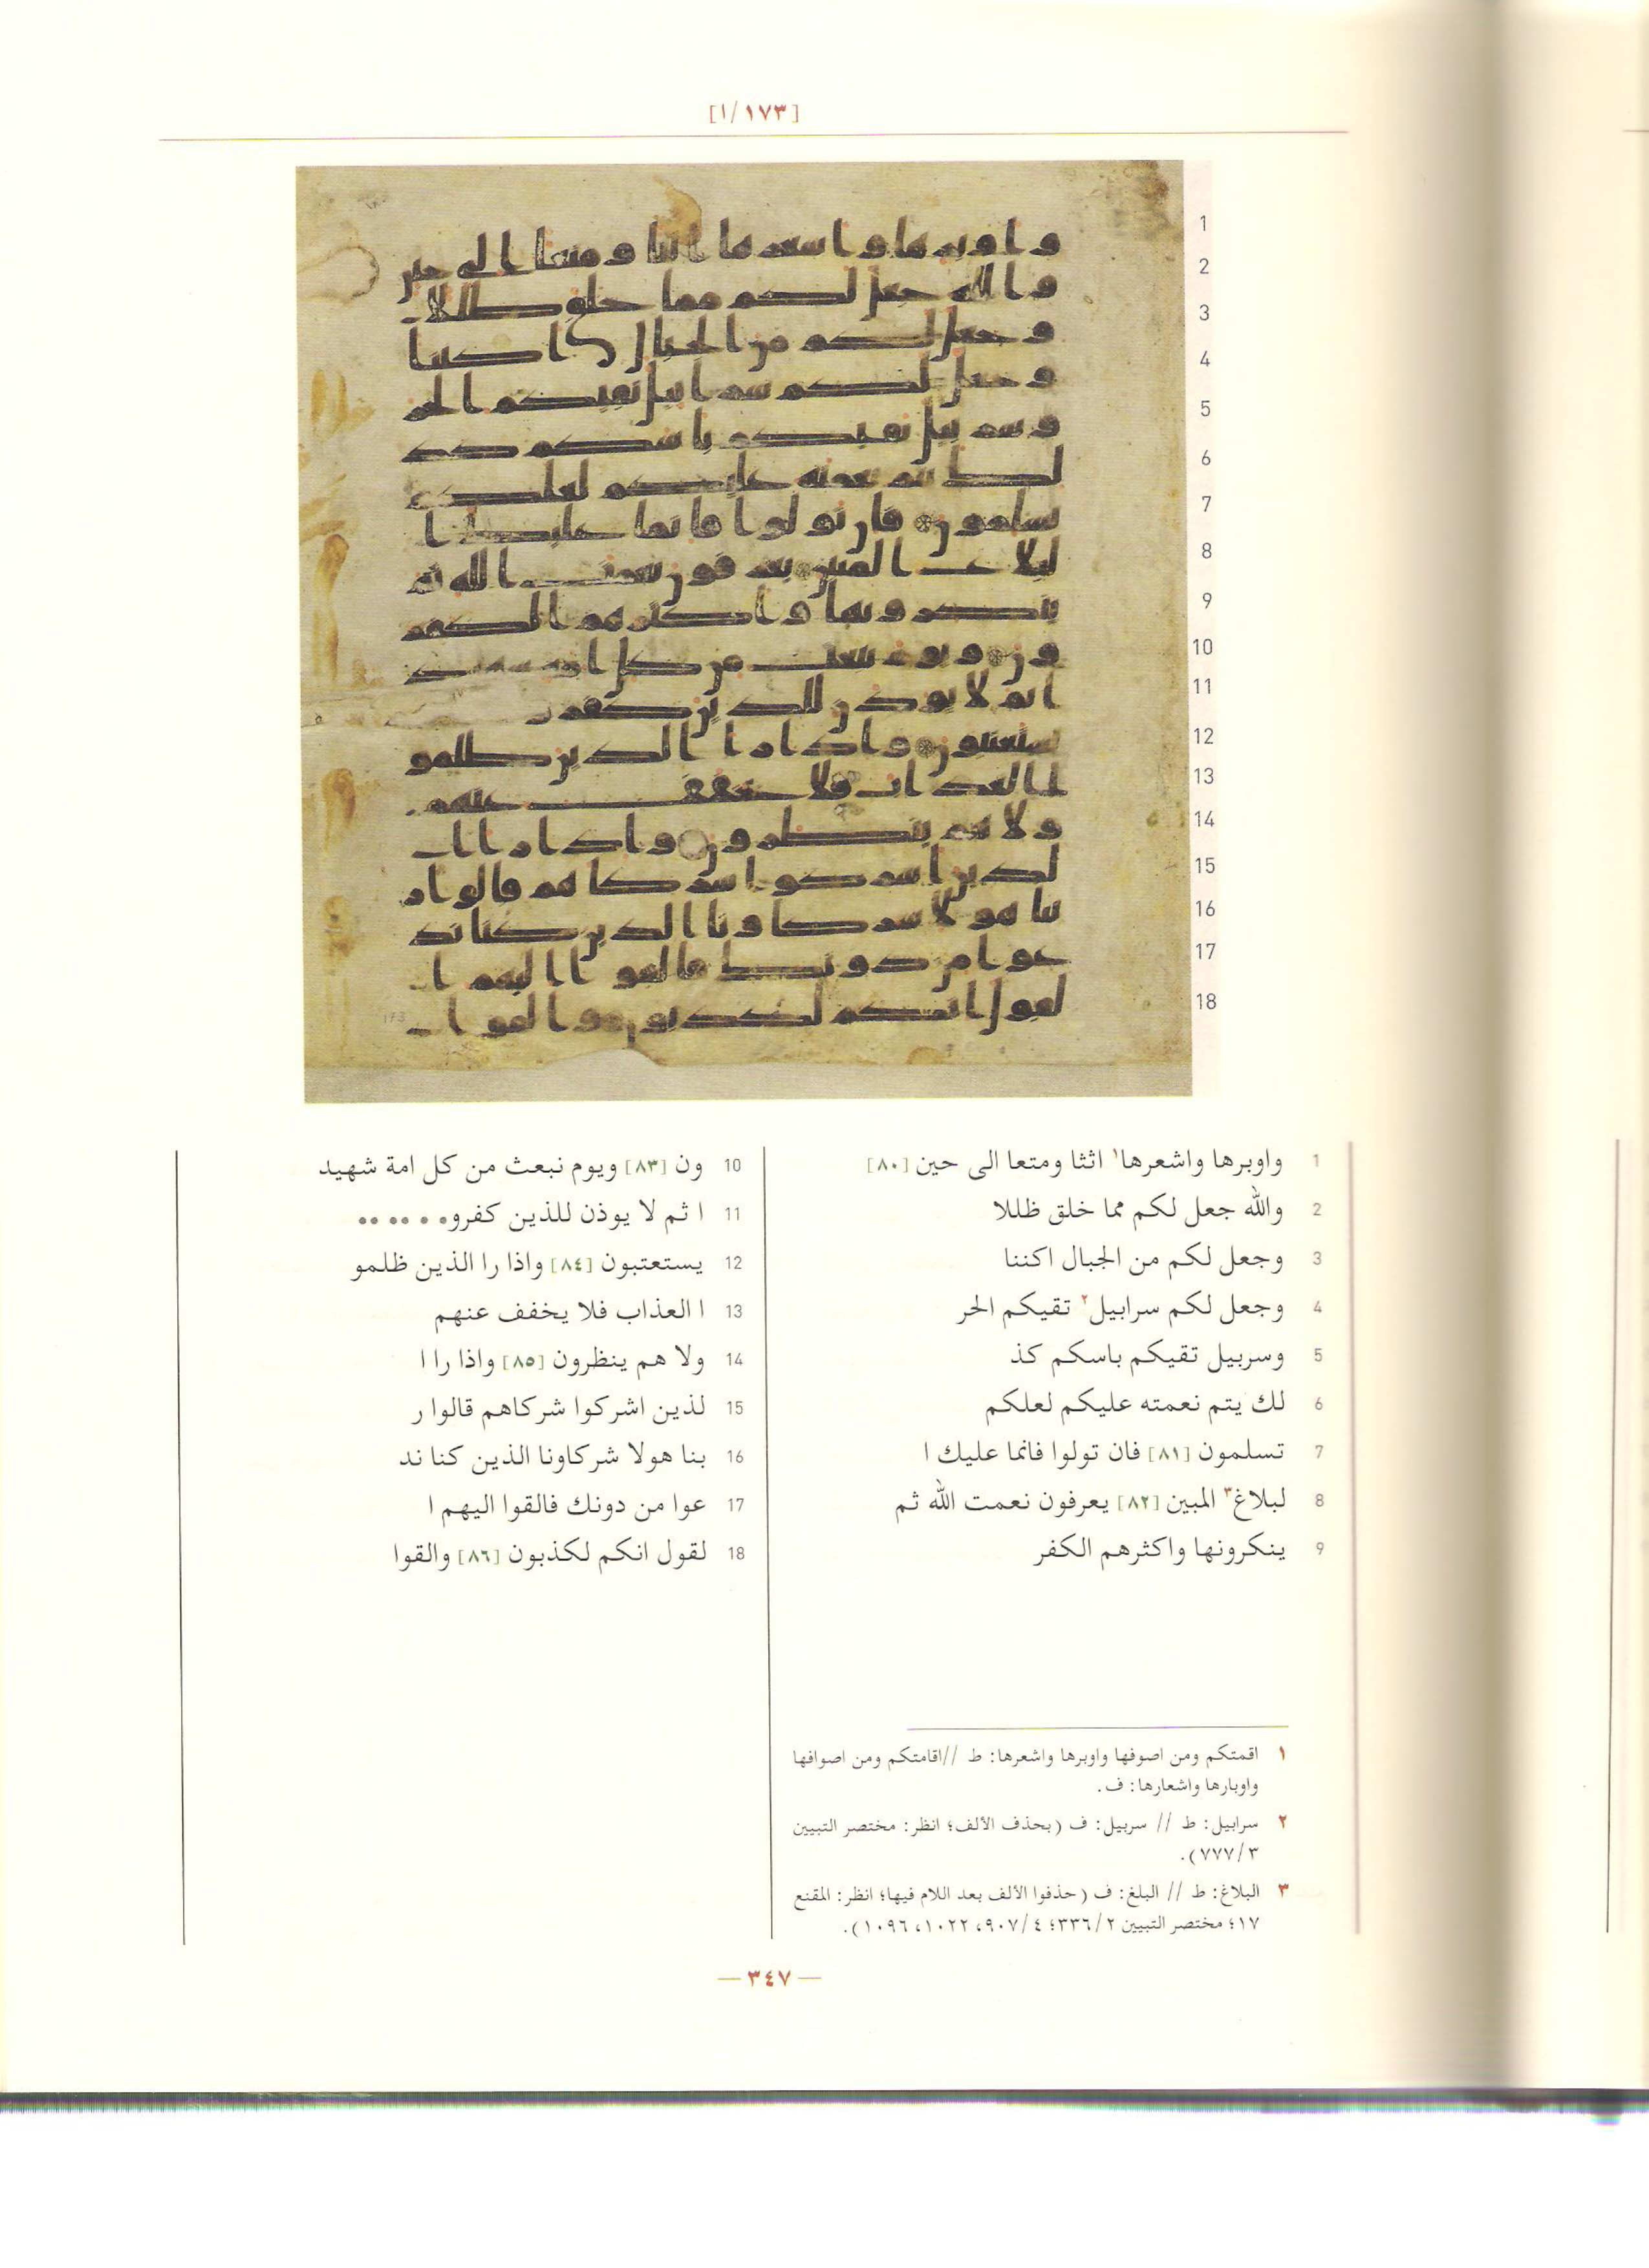 [١/١٧٣]
1 واوبرها واشعرها١ اثثا ومتعا الى حين [٨٠]
2 والله جعل لكم مما خلق ظللا
3 وجعل لكم من الجبال اكننا
4 وجعل لكم سرابيل٢ تقيكم الحر
5 وسربيل تقيكم باسكم كذ
6 لك يتم نعمته عليكم لعلكم
7 تسلمون [٨١] فان تولوا فانما عليك ا
8 لبلاغ٣ المبين [٨٢] يعرفون نعمت الله ثم
9 ينكرونها واكثرهم الكفر
10 ون [٨٣] ويوم نبعث من كل امة شهيد
11 ا ثم لا يوذن للذين كفرو• • •• ••
12 يستعتبون [٨٤] واذا را الذين ظلمو
13 ا العذاب فلا يخفف عنهم
14 ولا هم ينظرون [٨٥] واذا را ا
15 لذين اشركوا شركاهم قالوا ر
16 بنا هولا شركاونا الذين كنا ند
17 عوا من دونك فالقوا اليهم ا
18 لقول انكم لكذبون [٨٦] والقوا
١ اقمتكم ومن اصوفها واوبرها واشعرها: ط //اقامتكم ومن اصوافها
واوبارها واشعارها: ف.
٢ سرابيل: ط // سربيل: ف (بحذف الألف؛ انظر: مختصر التبيين
٧٧٧/٣).
٣ البلاغ: ط // البلغ: ف (حذفوا الألف بعد اللام فيها؛ انظر: المقنع
١٧؛ مختصر التبيين ٣٣٦/٢؛ ٩٠٧/٤، ١٠٢٢، ١٠٩٦).
— ٣٤٧ —